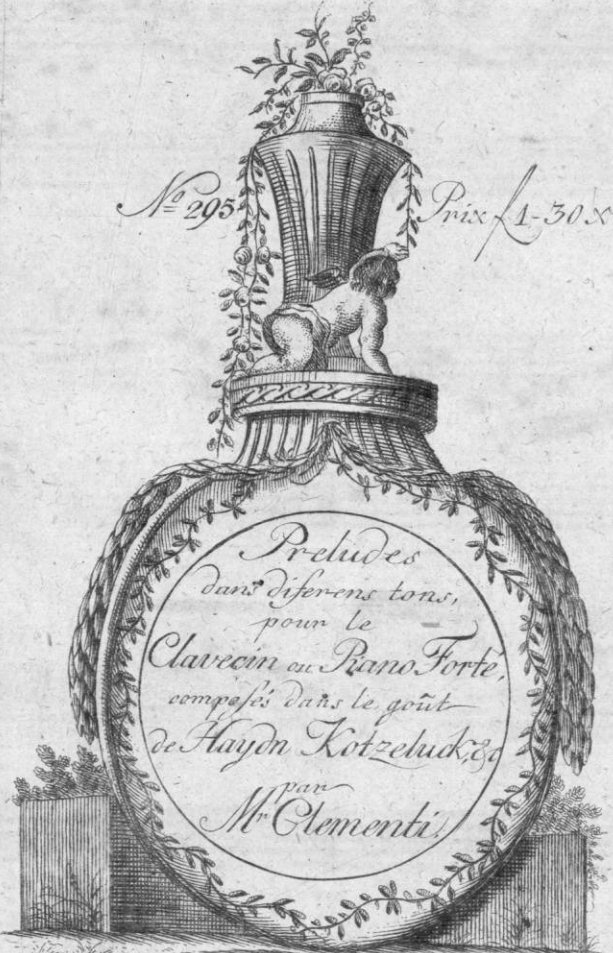 Nº 295
Prix f 1-30 x
Preludes
dans diferens tons,
pour le
Clavecin ou Piano Forte,
composés dans le goût
de Haydn Kotzeluck, &c
par
Mr Clementi.